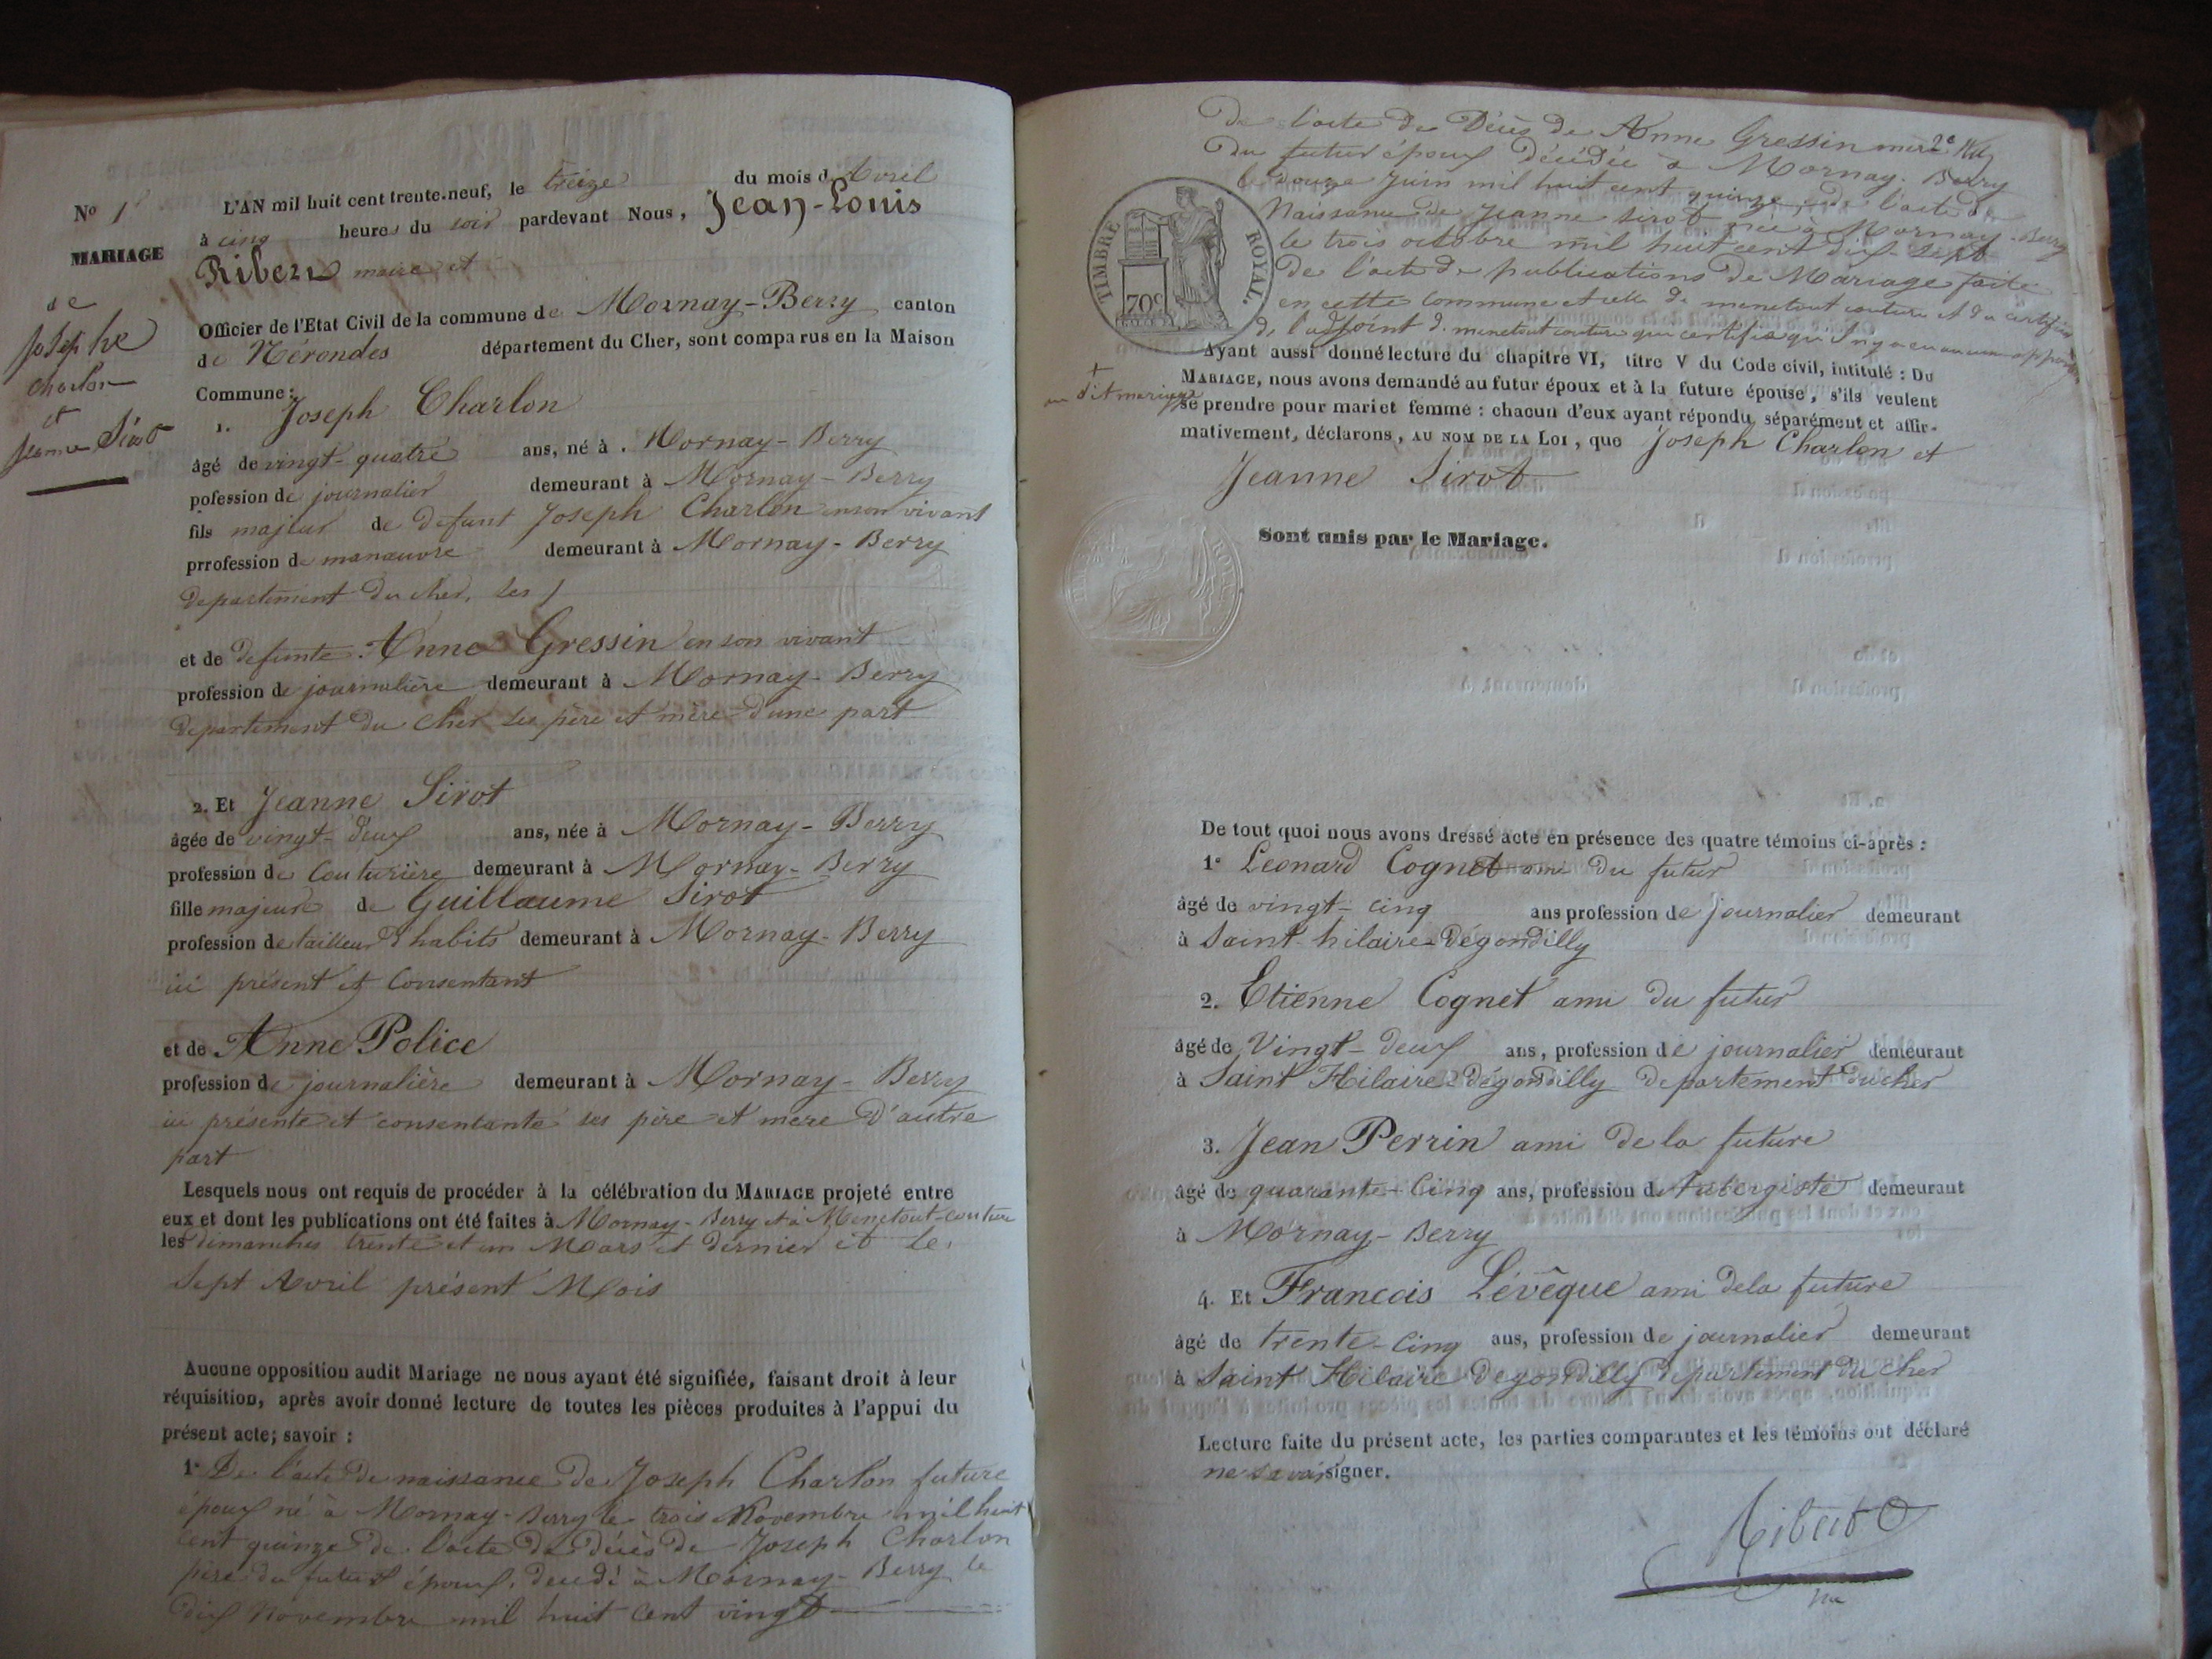 No 1
MARIAGE
de
Josephe
Charlon
et
Jeanne Sirot
L'AN mil huit cent trente-neuf, le treize du mois d'Avril
à cinq heures du soir pardevant Nous, Jean-Louis
maire et
Officier de l'Etat Civil de la commune de Mornay-Berry canton
de Nérondes département du Cher, sont comparus en la Maison
Commune:
1. Joseph Charlon
âgé de vingt-quatre ans, né à Mornay-Berry
pofession de journalier demeurant à Mornay-Berry
fils majeur de defunt Joseph Charlon enson vivant
prrofession de manœuvre demeurant à Mornay-Berry
departement du cher, ses
et de defunte Anne Gressin en son vivant
profession de journalière demeurant à Mornay-Berry
departement du cher ses père et mère d'une part
2. Et Jeanne Sirot
âgée de vingt-deux ans, née à Mornay-Berry
profession de Couturière demeurant à Mornay-Berry
fille majeure de Guillaume Sirot
profession de tailleur d'habits demeurant à Mornay-Berry
ici présent et Consentant
et de Anne Police
profession de journalière demeurant à Mornay-Berry
ici présente et consentante ses père et mere d'autre
part
Lesquels nous ont requis de procéder à la célébration du MARIAGE projeté entre
eux et dont les publications ont été faites à Mornay-Berry et à Menetout-couture
les dimanches trente et un Mars et dernier et le
Sept Avril présent Mois
Aucune opposition audit Mariage ne nous ayant été signifiée, faisant droit à leur
réquisition, après avoir donné lecture de toutes les pièces produites à l'appui du
présent acte; savoir :
1° De l'acte de naissance de Joseph Charlon future
époux né à Mornay-Berry le trois Novembre mil huit
cent quinze de l'acte de décès de Joseph Charlon
père du futur époux, decedé à Mornay-Berry le
dix Novembre mil huit cent vingt
De l'acte de Décès de Anne Gressin mère
du futur époux décédée à Mornay-Berry
le douze Juin mil huit cent quinze, de l'acte de
Naissance de Jeanne Sirot née à Mornay-Berry
le trois octobre mil huit cent dix-sept
de l'acte de publications de Mariage faite
en cette Commune et celle de menetout couture et du certificat
de l'adjoint de menetout couture qui certifie qu'il n'y a eu aucune opposition
TIMBRE ROYAL.
70c
+
au dit mariage
Ayant aussi donné lecture du chapitre VI, titre V du Code civil, intitulé : DU
MARIAGE, nous avons demandé au futur époux et à la future épouse, s'ils veulent
se prendre pour mari et femme : chacun d'eux ayant répondu séparément et affir-
mativement, déclarons, AU NOM DE LA LOI, que Joseph Charlon et
Jeanne Sirot
Sont unis par le Mariage.
De tout quoi nous avons dressé acte en présence des quatre témoins ci-après :
1° Leonard Cognet ami du futur
âgé de vingt-cinq ans profession de journalier demeurant
à Saint-hilaire-Dégondilly
2. Etienne Cognet ami du futur
âgé de Vingt-deux ans, profession de journalier demeurant
à Saint Hilaire-Dégondilly departement du cher
3. Jean Perrin ami de la future
âgé de quarante-Cinq ans, profession d'Aubergiste demeurant
à Mornay-Berry
4. Et Francois Lévêque ami dela future
âgé de trente-Cinq ans, profession de journalier demeurant
à Saint Hilaire Degondilly departement du cher
Lecture faite du présent acte, les parties comparantes et les témoins ont déclaré
ne savoir signer.